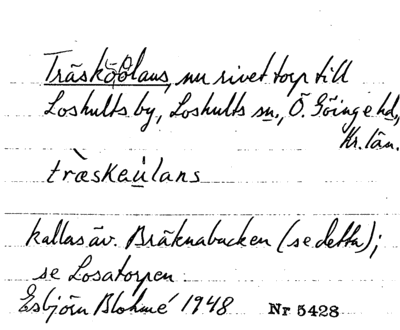 Träsköölans, nu rivet torp till
Loshults by, Loshults sn., Ö. Göinge hd.,
Kr. län.
træskeu̇lans
kallas äv. Bräknabacken (se detta);
se Losatorpen
Esbjörn Blohmé 1948 Nr 5428